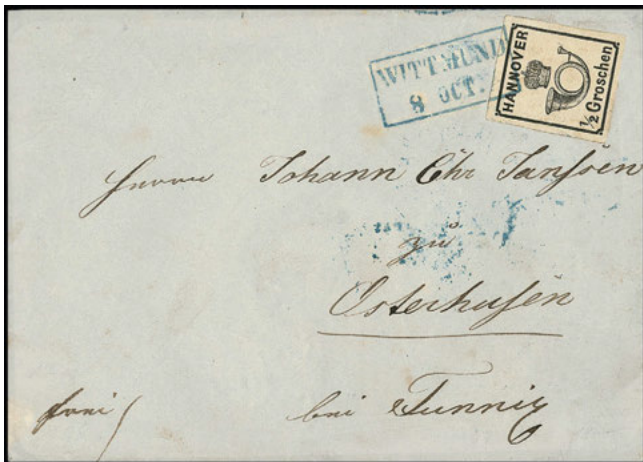 WITTMUND
8 OCT.
HANNOVER
1/2 Groschen
Herrn Johann Chr Janssen
zu
Osterhusen
bei Funnix
frei